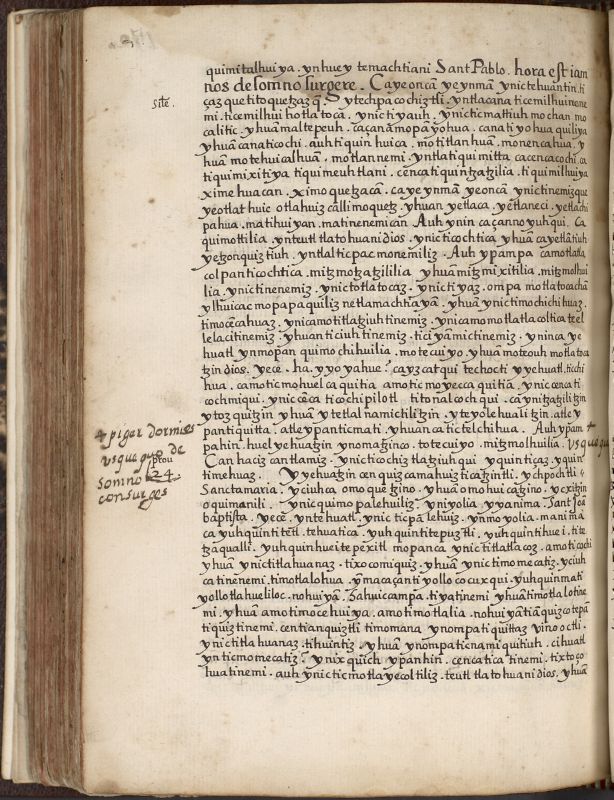 quimitalhui ya. yn huey temachtiani Sant Pablo. hora est iam
nos de somno surgere. Ca ye oncã ye ynmã ynic tehuantin. ti
çazque tito quetzazq̃. Sytechpa cochiztli. yntlacana ticemilhuinene
site.
mi. ticemilhui hotlatoca. ynic tiyauh. ynictic mattiuh mochan mo
calitic. yhuã maltepeuh. caçanã mopã yohua. cana tiyohuaquiliya
yhuã cana ticochi. auh tiquin huica. motitlanhuã. monencahua. y
huã motehuicalhuã. motlannemi. yntla tiquimitta cacenca cochi. ca
tiquimixitiya tiquimeuhtlani. cenca tiquintzatzilia. tiquimilhuiya
ximehuacan. ximoquetzacã. caye ynmã yeoncã. ynic tinemizque
ye otlathuic otlahuizcalli moquetz. yhuan yetlaca. yetlaneci. yetlachi
pahua. matihuiyan. matinenemican. Auh ynin caçanno yuhqui. Ca
quimottilia. ynteutl tlatohuani dios. ynic ticochtica yhuã cayetlãtiuh
yetzonquiztiuh. yntlalticpac monemiliz. Auh ypampa camotlatla
colpan ticochtica. mitzmotzatzililia yhuã mitzmixitilia. mitzmolhui
lia. ynic tinenemiz. ynic totlatocaz. ynic tiyaz. ompa motlatocachã
ylhuicac mopapaquiliznetlamachtiayã. yhuã ynic timochichihuaz.
timocẽcahuaz. ynicamo titlatziuhtinemiz. ynicamo motlatlacoltica teel
lelacitinemiz. yhuan ticiuhtinemiz. ticiyãmictinemiz. yninca ye
huatl ynmopan quimochihuilia. motecuiyo. yhuã moteouh motlatoca
tzin dios. yece. ha. yyoyahue. cayzcatqui techocti yyehuatl. ticchi
hua. camotic mohuelcaquitia amotic moyeccaquitiã. ynic cenca ti
cochmiqui. ynic cẽca ticochipilotl titonalcochqui. ca ynitzatzilitzin
ytozquitzin yhuã ytetlalnamictilitzin. yteyolehualitzin. atle y
+ piger dormies
pan tiquitta. atle ypan ticmati. yhuan catictelchihua. Auh yp̃am +
usque quo de
pahin. huel yehuatzin ynomatzinco. totecuiyo. mitzmolhuilia. usquequo
somno
24
Can haciz cantlamiz. ynic ticochiz tlatziuhqui yquin tiçaz. yquin
consurges
timehuaz. Yyehuatzin cenquizcamahuiztic ãtzintli. ychpochtli.
Sancta maria. yciuhca omoquetzino. yhuã omohuicatzino. ycxitzin
oquimanili. ynic quimopalehuiliz yniyolia yyanima. Sant Joã
baptista. yece. yntehuatl. ynic ticpalehuiz. ynmoyolia. manimã
ca yuhquin titẽtl. tehuatica. yuhquin titepuztli. yuhquin tihuei. tite
tzaqualli. yuhquin huei tepexitl mopanca. ynic titlatlacoz. amo ticochi
yhuã ynic titlahuanaz. tixocomiquiz. yhuã ynic timomecatiz. yciuh
catinenemi. timotlalohua. ỹmaçaçanti yollococuxqui. yuhquin mati
yollotlahueliloc. nohuiyã. Sahuicampa. tiyatinemi yhuã timotlalotine
mi. yhuã amo timocehuiya. amo timotlalia. nohuiyã tiãquizcotepã
tiquiztinemi. centianquiztli timomana ynompa tiquittaz vino octli.
ynic titlahuanaz. tihuintiz. yhuã ynompa ticnamiquitiuh. cihuatl
yn tic momecatiz. ynixquich yp̃anhin. cencatica tinemi. tixtoço
huatinemi. auh ynic ticmotlayecoltiliz. teutl tlatohuani dios. yhuã